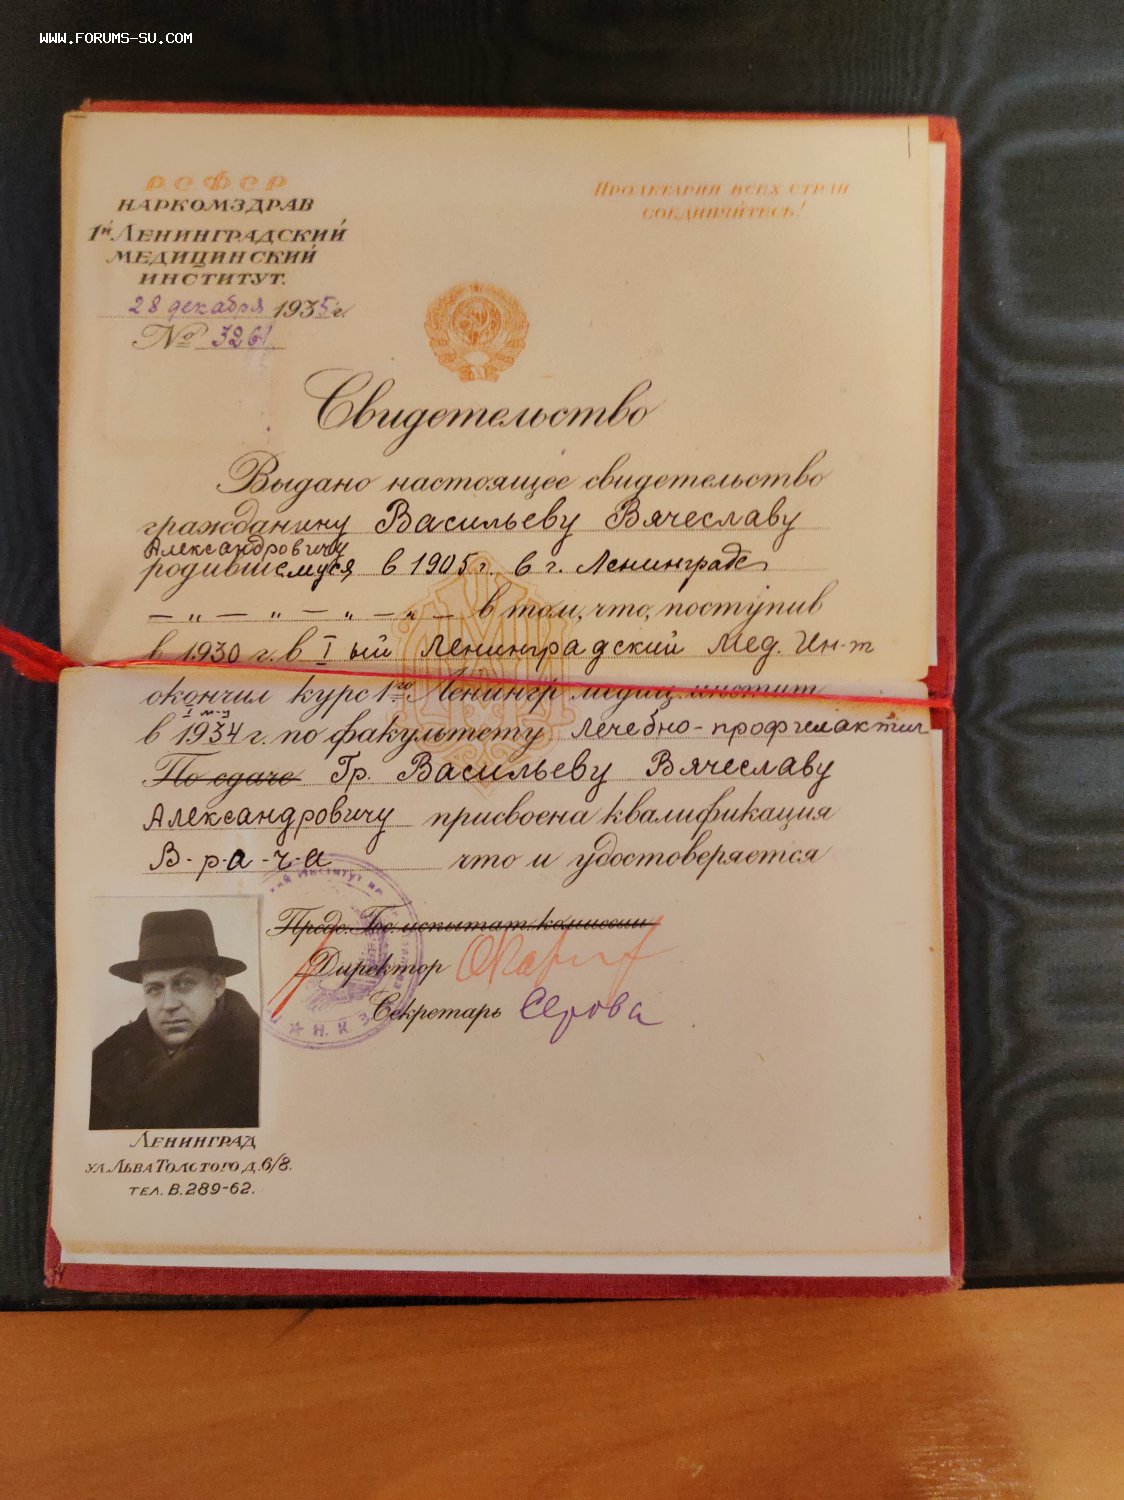 WWW.FORUMS-SU.COM
Р.С.Ф.С.Р
НАРКОМЗДРАВ
1й ЛЕНИНГРАДСКИЙ
МЕДИЦИНСКИЙ
ИНСТИТУТ.
28 декабря 1935 г.
№ 3261
ПРОЛЕТАРИИ ВСЕХ СТРАН
СОЕДИНЯЙТЕСЬ!
Свидетельство
Выдано настоящее свидетельство
гражданину Васильеву Вячеславу
Александровичу
родившемуся в 1905 г. в г. Ленинграде
— „ — „ — „ — „ — в том, что, поступив
в 1930 г. в I ый Ленинградский Мед. Ин-т
окончил курс 1го Ленингр медиц. инстит
в 1934 г. по факультету Лечебно-профилактич
По сдаче Гр. Васильеву Вячеславу
Александровичу присвоена квалификация
В-р-а-ч-а что и удостоверяется
Предс. Гос. испытат. комиссии
Директор
Секретарь Серова
Н. К. З.
ЛЕНИНГРАД
УЛ. ЛЬВА ТОЛСТОГО Д. 6/8.
ТЕЛ. В. 289-62.